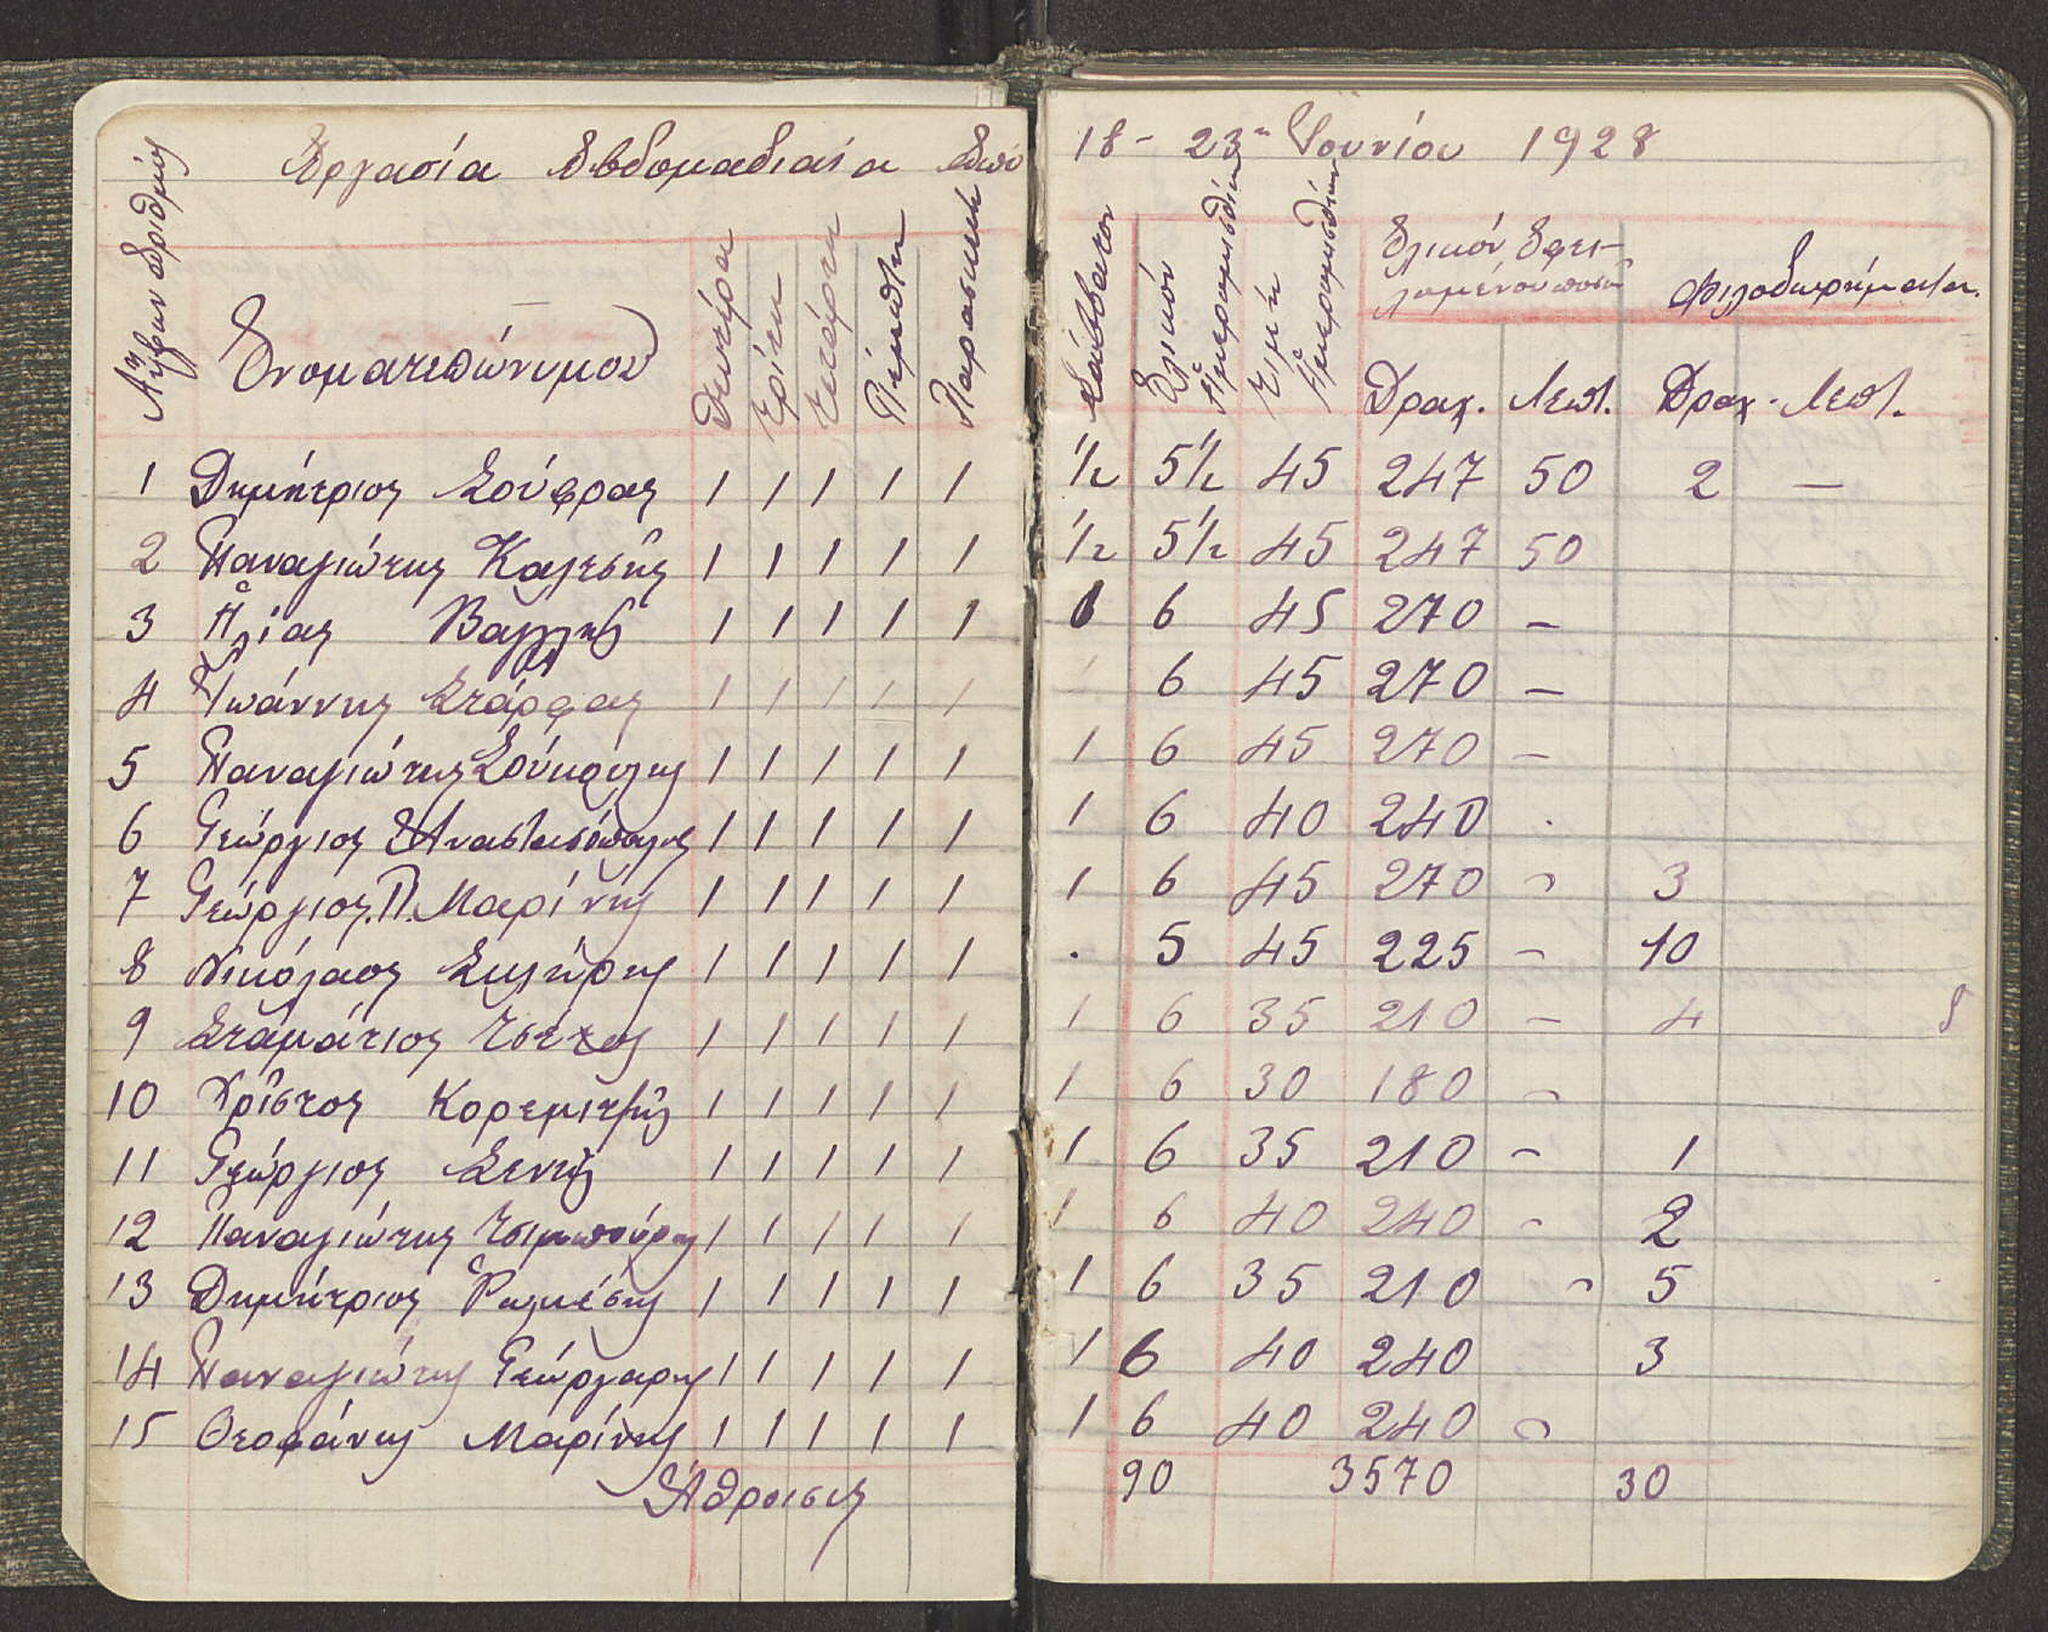 Ἐργασία ἑβδομαδιαία ἀπὸ 18 - 23ης Ἰουνίου 1928
Αὔξων Ἀριθμός Ὀνοματεπώνυμον Δευτέρα Τρίτη Τετάρτη Πέμπτη Παρασκευή Σάββατον Ὁλικόν Ἡμερομισθίων Τιμή Ἡμερομισθίων Ὁλικόν Ὀφει-
λομένου ποσοῦ Φιλοδωρήματα
Δραχ. Λεπτ. Δραχ. Λεπτ.
1 Δημήτριος Σούφρας 1 1 1 1 1 1/2 5 1/2 45 247 50 2 —
2 Παναγιώτης Καλεσῆς 1 1 1 1 1 1/2 5 1/2 45 247 50
3 Ἠλίας Βαγγλῆς 1 1 1 1 1 1 6 45 270 —
4 Ἰωάννης Στάρφας 1 1 1 1 1 1 6 45 270 —
5 Παναγιώτης 1 1 1 1 1 1 6 45 270 —
6 Γεώργιος Ἀναστασόπουλος 1 1 1 1 1 1 6 40 240 .
7 Γεώργιος. Π. Μαρίνης 1 1 1 1 1 1 6 45 270 – 3
8 Νικόλαος Σκλήρης 1 1 1 1 1 . 5 45 225 – 10
9 Σταμάτιος 1 1 1 1 1 1 6 35 210 – 4
10 Χρῖστος Κορεμιτζῆς 1 1 1 1 1 1 6 30 180 –
11 Γεώργιος Σενῆς 1 1 1 1 1 1 6 35 210 – 1
12 Παναγιώτης Τσιμπούρης 1 1 1 1 1 1 6 40 240 – 2
13 Δημήτριος 1 1 1 1 1 1 6 35 210 – 5
14 Παναγιώτης Γεώργαρης 1 1 1 1 1 1 6 40 240 3
15 Θεοφάνης Μαρίνης 1 1 1 1 1 1 6 40 240 –
Ἄθροισις 90 3570 30